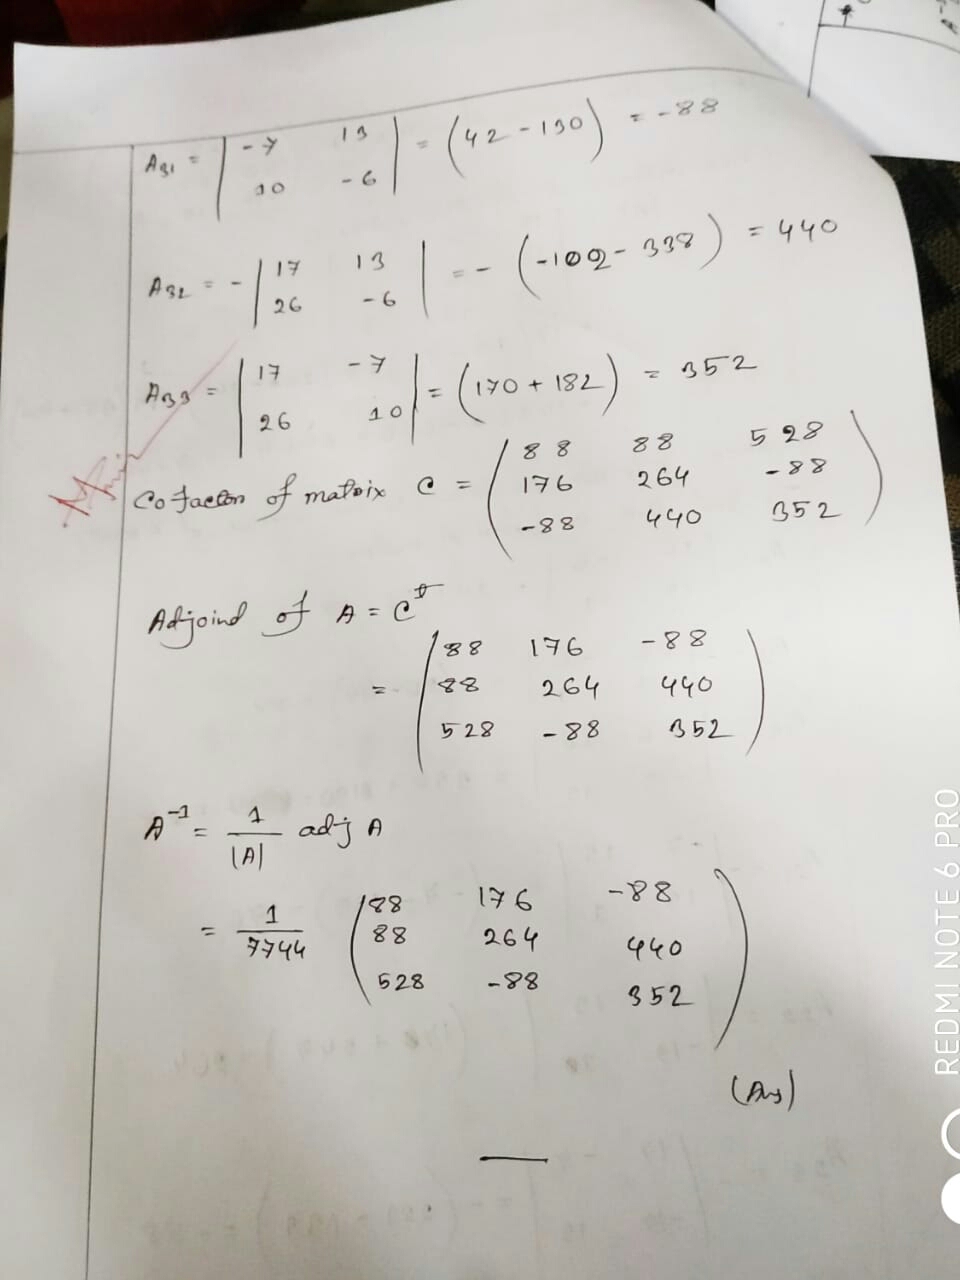 A₃₁ = | -7 13 | = (42 - 130) = -88
| 10 -6 |
A₃₂ = - | 17 13 | = - (-102 - 338) = 440
| 26 -6 |
A₃₃ = | 17 -7 | = (170 + 182) = 352
| 26 10 |
Cofacton of matrix C = ( 88 88 528 )
( 176 264 -88 )
( -88 440 352 )
Adjoind of A = Cᵗ
= ( 88 176 -88 )
( 88 264 440 )
( 528 -88 352 )
A⁻¹ = 1/|A| adj A
= 1/7744 ( 88 176 -88 )
( 88 264 440 )
( 528 -88 352 )
(Ans)
REDMI NOTE 6 PRO